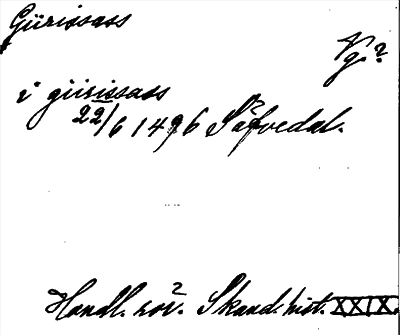 Giirissass
Vg.?
i giirissass
22/6 1496 Säfvedal.
Handl. rör. Skand. hist. XXIX.